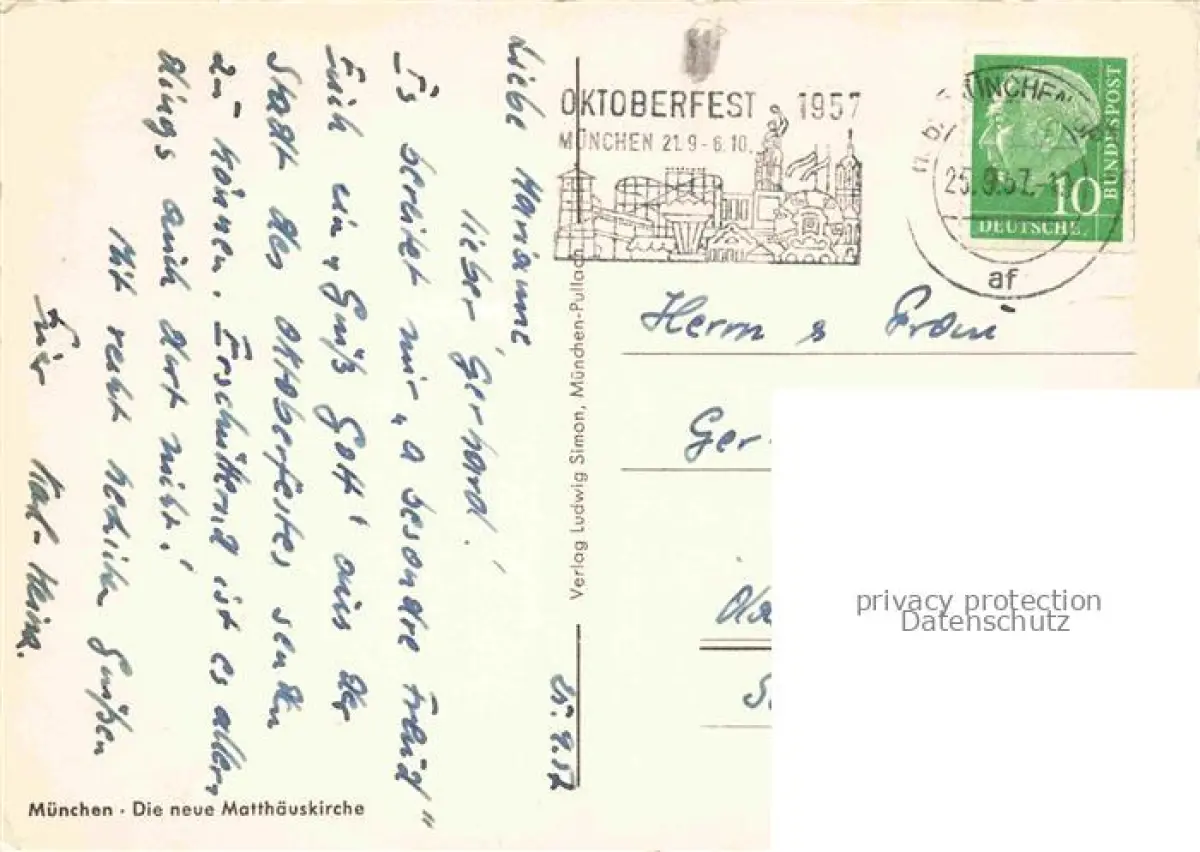 25.9.57
Liebe Marianne,
lieber Gerhard!
Es bereitet mir "a besondre Freud"
Euch ein "Grüß Gott" aus der
Stadt des Oktoberfestes senden
zu können. Erschütternd ist es aller-
dings auch dort nicht!
Mit recht herzlichen Grüßen
Euer Karl-Heinz.
München · Die neue Matthäuskirche
Verlag Ludwig Simon, München-Pullach
OKTOBERFEST 1957
MÜNCHEN 21.9-6.10.
MÜNCHEN
25.9.57.-11
af
10
DEUTSCHE
BUNDESPOST
Herrn & Frau
Ger
privacy protection
Datenschutz